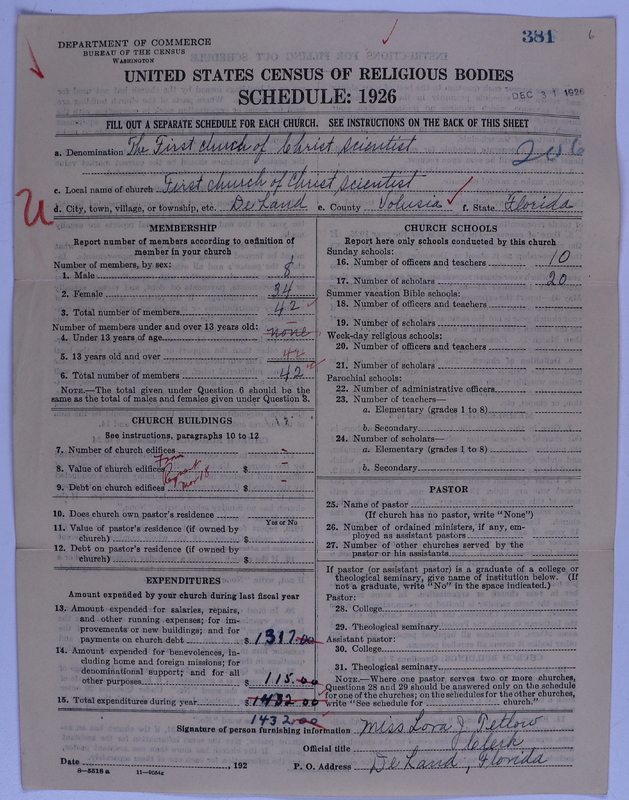 381 6
DEPARTMENT OF COMMERCE
BUREAU OF THE CENSUS
WASHINGTON
UNITED STATES CENSUS OF RELIGIOUS BODIES
SCHEDULE: 1926
DEC 31 1926
FILL OUT A SEPARATE SCHEDULE FOR EACH CHURCH. SEE INSTRUCTIONS ON THE BACK OF THIS SHEET
a. Denomination The First church of Christ Scientist
c. Local name of church First church of Christ Scientist
d. City, town, village, or township, etc. De Land e. County Volusia f. State Florida
MEMBERSHIP
Report number of members according to definition of
member in your church
Number of members, by sex:
1. Male 8
2. Female 34
3. Total number of members 42
Number of members under and over 13 years old:
4. Under 13 years of age none
5. 13 years old and over 42
6. Total number of members 42
NOTE.—The total given under Question 6 should be the
same as the total of males and females given under Question 3.
CHURCH BUILDINGS
See instructions, paragraphs 10 to 12
7. Number of church edifices -
8. Value of church edifices $ -
9. Debt on church edifices $ -
10. Does church own pastor's residence
Yes or No
11. Value of pastor's residence (if owned by
church) $
12. Debt on pastor's residence (if owned by
church) $
EXPENDITURES
Amount expended by your church during last fiscal year
13. Amount expended for salaries, repairs,
and other running expenses; for im-
provements or new buildings; and for
payments on church debt $ 1317.00
14. Amount expended for benevolences, in-
cluding home and foreign missions; for
denominational support; and for all
other purposes $ 115.00
15. Total expenditures during year $ 1432 00
1432 00
CHURCH SCHOOLS
Report here only schools conducted by this church
Sunday schools:
16. Number of officers and teachers 10
17. Number of scholars 20
Summer vacation Bible schools:
18. Number of officers and teachers
19. Number of scholars
Week-day religious schools:
20. Number of officers and teachers
21. Number of scholars
Parochial schools:
22. Number of administrative officers
23. Number of teachers—
a. Elementary (grades 1 to 8)
b. Secondary
24. Number of scholars—
a. Elementary (grades 1 to 8)
b. Secondary
PASTOR
25. Name of pastor
(If church has no pastor, write "None")
26. Number of ordained ministers, if any, em-
ployed as assistant pastors
27. Number of other churches served by the
pastor or his assistants
If pastor (or assistant pastor) is a graduate of a college or
theological seminary, give name of institution below. (If
not a graduate, write "No" in the space indicated.)
Pastor:
28. College
29. Theological seminary
Assistant pastor:
30. College
31. Theological seminary
NOTE.—Where one pastor serves two or more churches,
Questions 28 and 29 should be answered only on the schedule
for one of the churches; on the schedules for the other churches,
write "See schedule for church."
Signature of person furnishing information Miss Lora J. Tetlow
Official title Clerk
Date , 192 P. O. Address De Land, Florida
8—5518 a 11—9034c